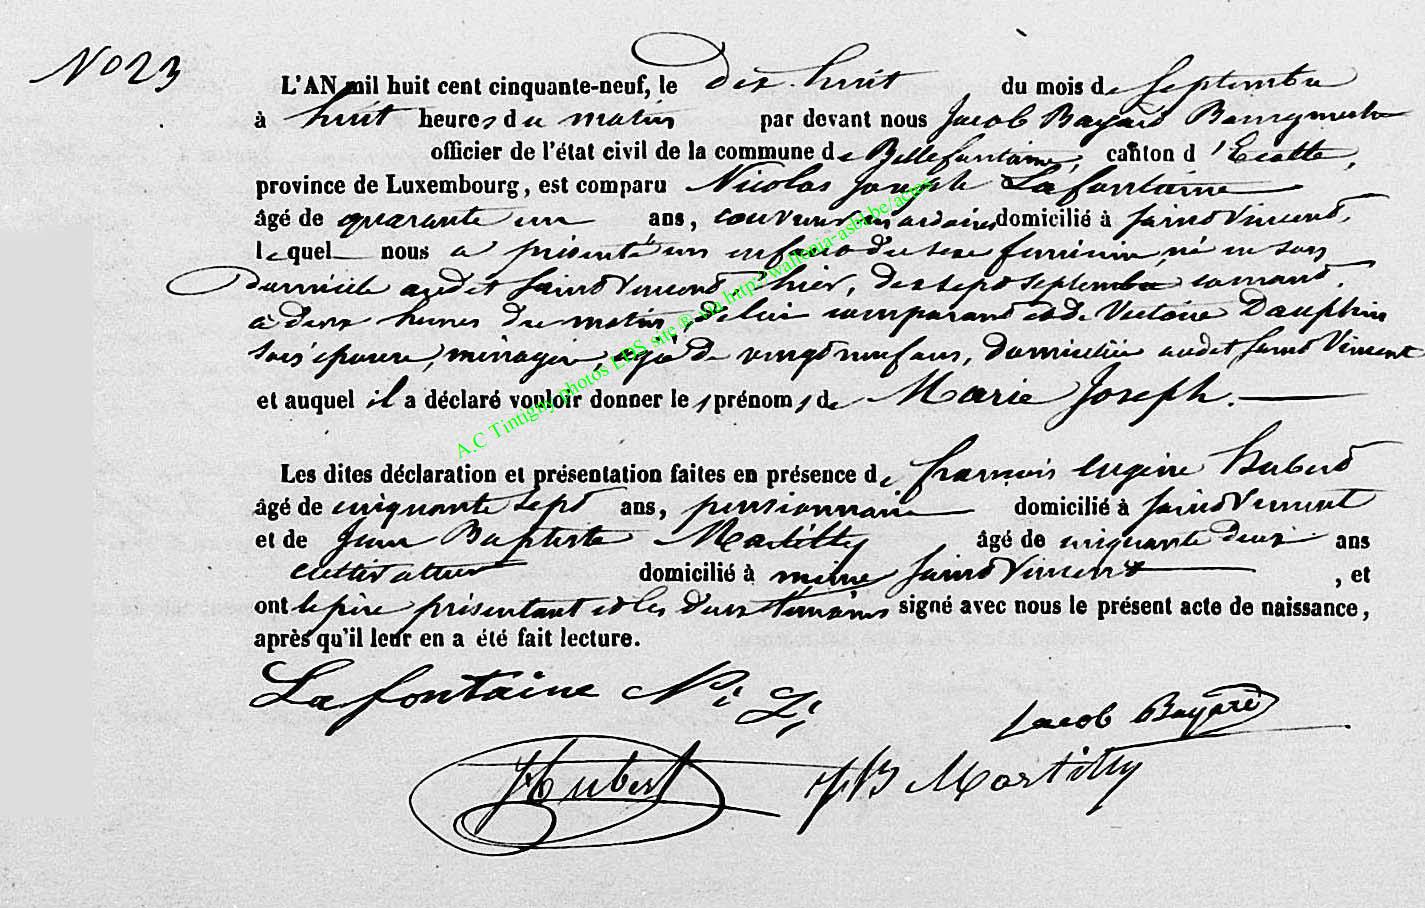 No 23
L'AN mil huit cent cinquante-neuf, le dix huit du mois de Septembre
à huit heures du matin par devant nous Jacob Bayard Bourgmestre
officier de l'état civil de la commune de Bellefontaine, canton d'Etalle,
province de Luxembourg, est comparu Nicolas Joseph Lafontaine
âgé de quarante un ans, couvreur en ardoises domicilié à Saint Vincent,
lequel nous a présenté un enfant du sexe feminin, né en son
Domicile audit Saint Vincent, hier, dix sept septembre courant,
à deux heures du matin, de lui comparant et de Victoire Dauphin
son épouse, ménagère, agée de vingt neuf ans, domiciliée audit Saint Vincent
et auquel il a déclaré vouloir donner les prénoms de Marie Joseph.
Les dites déclaration et présentation faites en présence de françois Eugène Hubert
âgé de cinquante sept ans, pensionnaire domicilié à Saint Vincent
et de Jean Baptiste Martilly âgé de cinquante deux ans
cultivateur domicilié à même Saint Vincent, et
ont le père présentant et les deux témoins signé avec nous le présent acte de naissance,
après qu'il leur en a été fait lecture.
Lafontaine N. J.
Jacob Bayard
Hubert
JB Martilly
A.C Tintigny photos LDS site ® via http://wallonia-asbl.be/actes